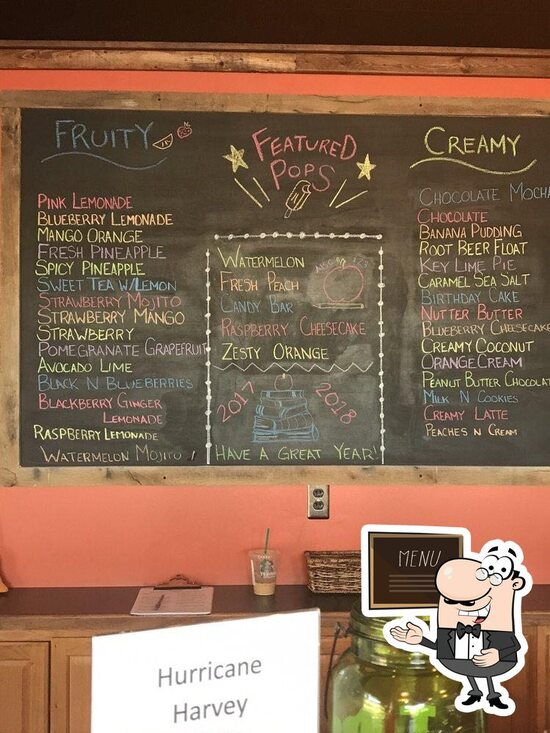 FRUITY
PINK LEMONADE
BLUEBERRY LEMONADE
MANGO ORANGE
FRESH PINEAPPLE
SPICY PINEAPPLE
SWEET TEA W/LEMON
STRAWBERRY MOJITO
STRAWBERRY MANGO
STRAWBERRY
POMEGRANATE GRAPEFRUIT
AVOCADO LIME
BLACK N BLUEBERRIES
BLACKBERRY GINGER
LEMONADE
RASPBERRY LEMONADE
WATERMELON MOJITO
FEATURED
POPS
WATERMELON
FRESH PEACH
CANDY BAR
RASPBERRY CHEESECAKE
ZESTY ORANGE
ABC & 123
2017 2018
HAVE A GREAT YEAR!
CREAMY
CHOCOLATE MOCHA
CHOCOLATE
BANANA PUDDING
ROOT BEER FLOAT
KEY LIME PIE
CARAMEL SEA SALT
BIRTHDAY CAKE
NUTTER BUTTER
BLUEBERRY CHEESECAKE
CREAMY COCONUT
ORANGE CREAM
PEANUT BUTTER CHOCOLAT
MILK N COOKIES
CREAMY LATTE
PEACHES N CREAM
MENU
Hurricane
Harvey